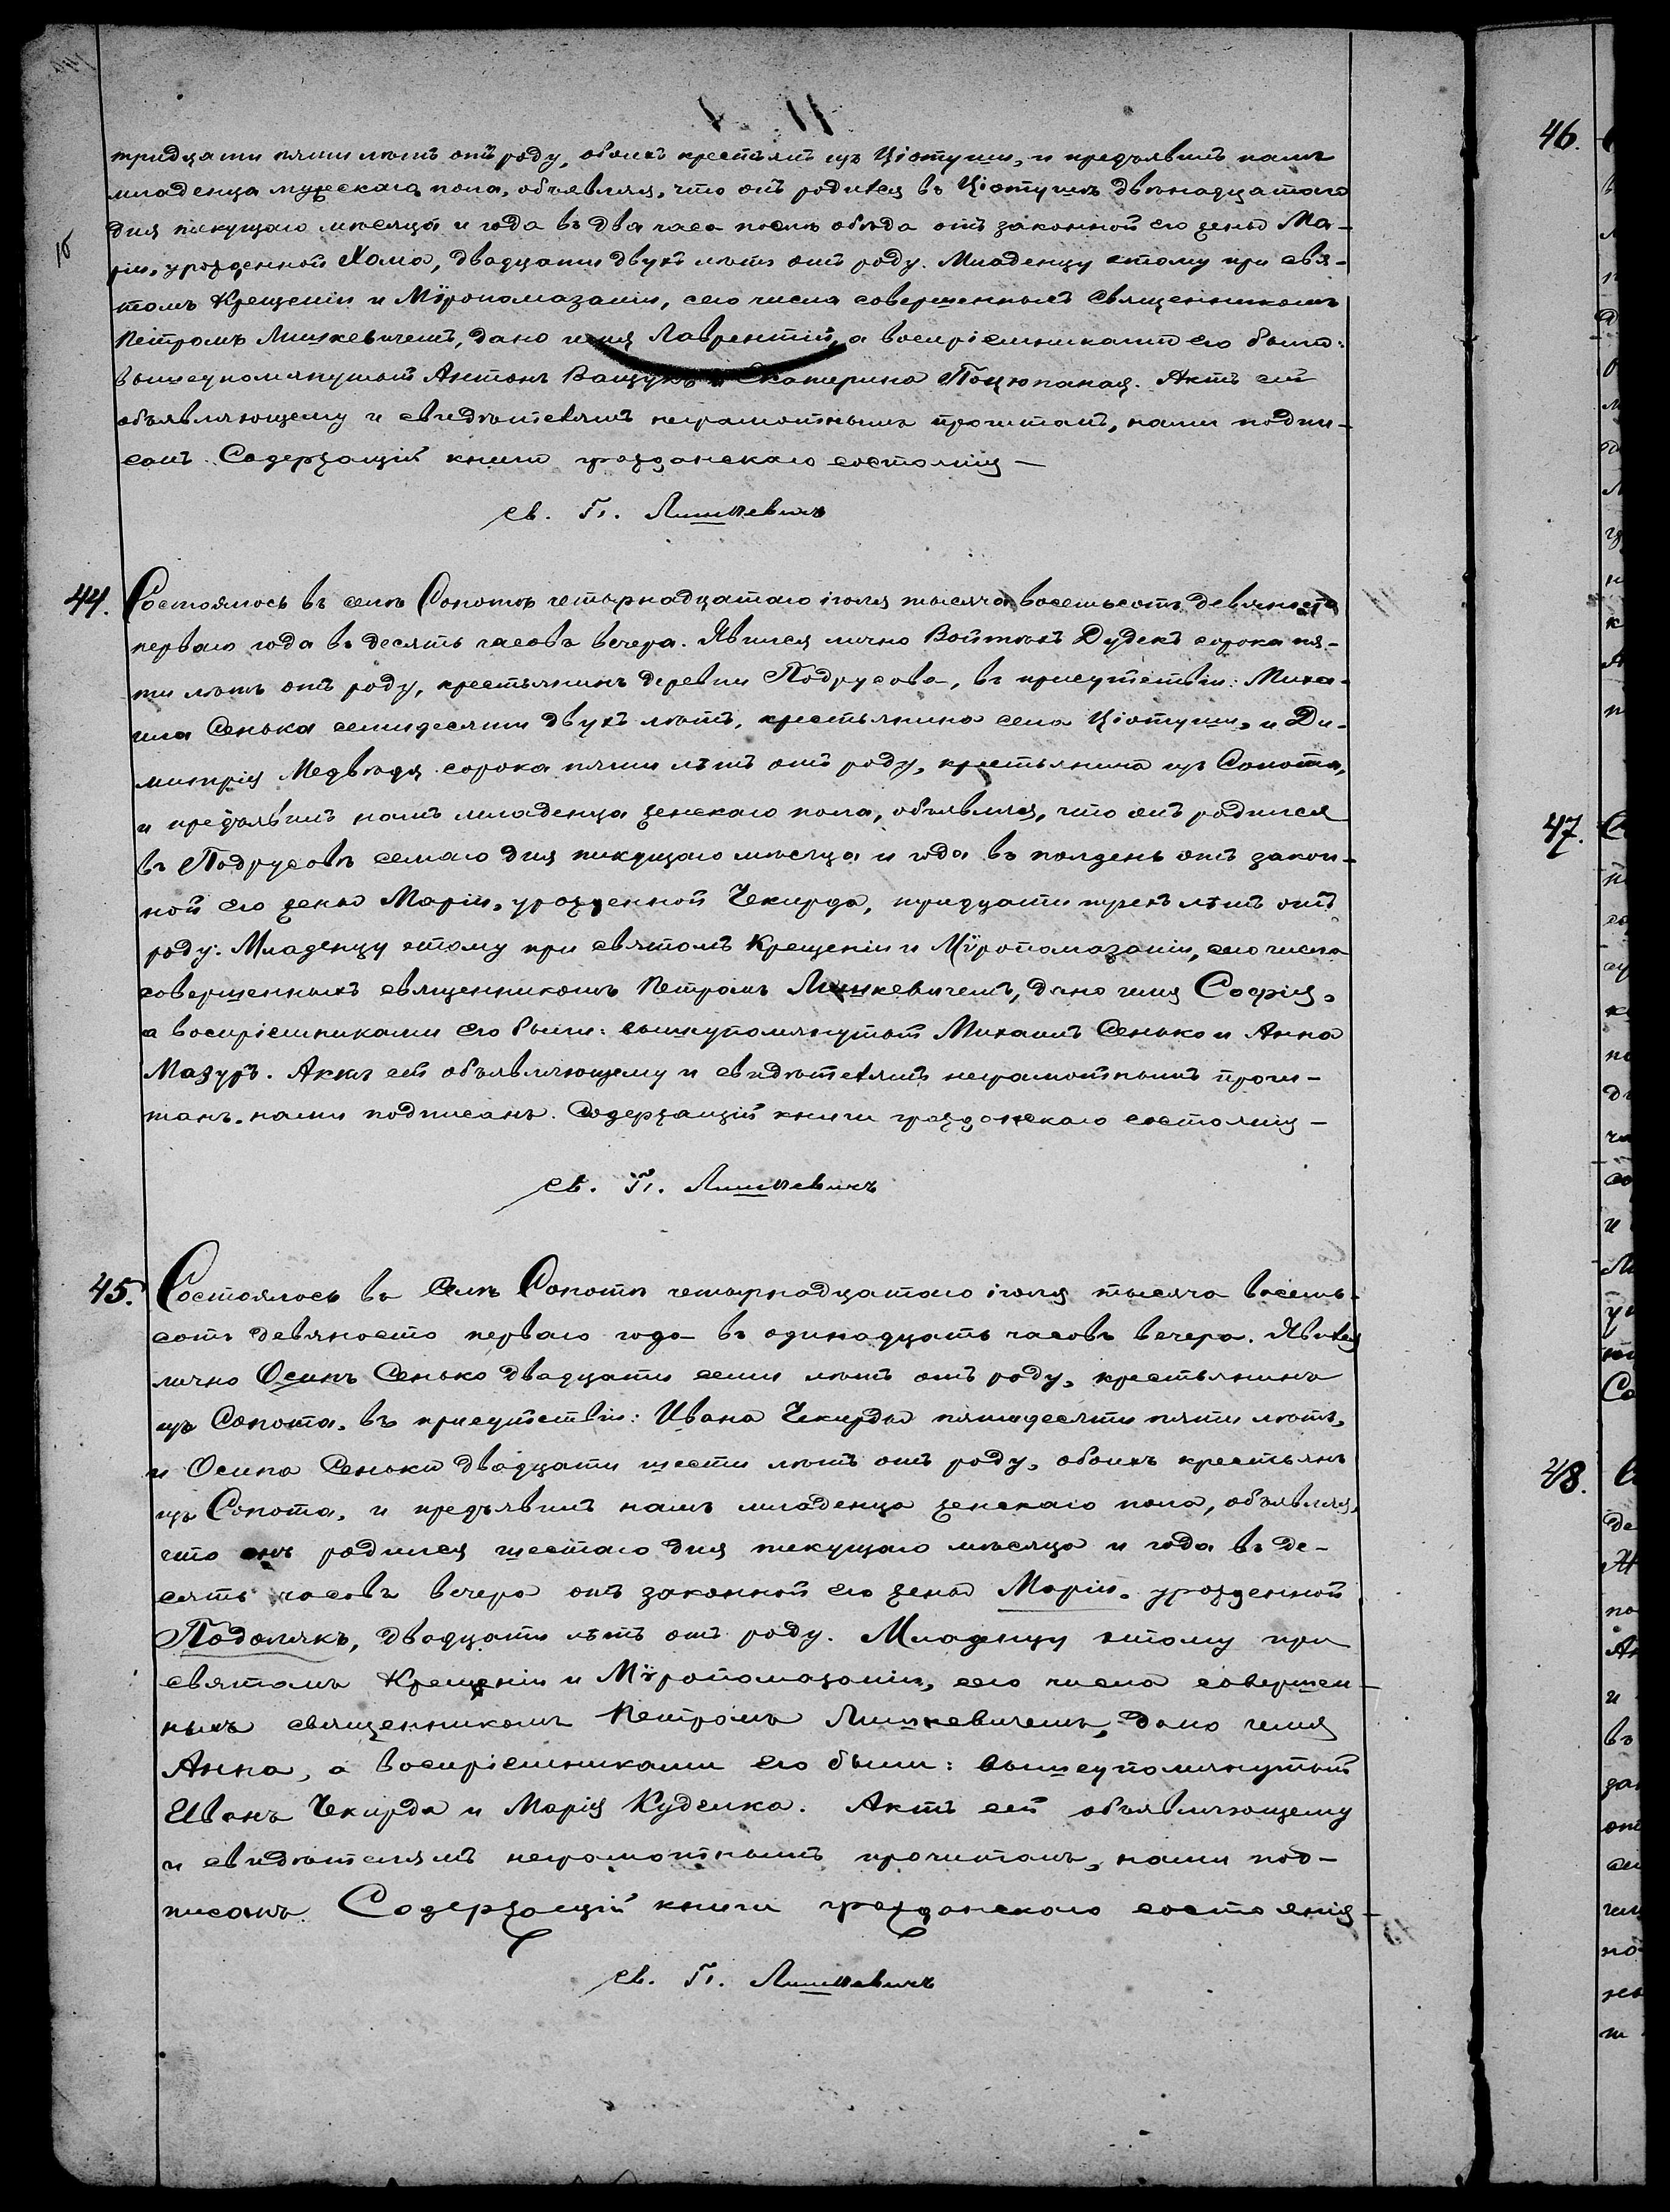 тридцати пяти лѣтъ отъ роду, обоихъ крестьянъ изъ Ціотуши, и предъявилъ намъ
младенца мужескаго пола, объявляя, что онъ родился въ Ціотушѣ двѣнадцатаго
дня текущаго мѣсяца и года въ два часа послѣ обѣда отъ законной его жены Ма-
ріи, урожденной Хама, двадцати двухъ лѣтъ отъ роду. Младенцу этому при свя-
томъ Крещеніи и Мѵропомазаніи, сего числа совершенныхъ священникомъ
Петромъ Лишкевичемъ, дано имя Лаврентій, а воспріемниками его были:
вышеупомянутый Антонъ Ващукъ и Екатерина Поцюпаная. Актъ сей
объявляющему и свидѣтелямъ неграмотнымъ прочитанъ, нами подпи-
санъ. Содержащій книги гражданскаго состоянія —
св. П. Лишкевичъ
44. Состоялось въ селѣ Сопотѣ четырнадцатаго іюля тысяча восемьсотъ девяносто
перваго года въ десять часовъ вечера. Явился лично Войтѣхъ Дудекъ сорока пя-
ти лѣтъ отъ роду, крестьянинъ деревни Подрусова, въ присутствіи: Миха-
ила Сенька семидесяти двухъ лѣтъ, крестьянина села Ціотуши, и Ди-
митрія Медвѣдя сорока пяти лѣтъ отъ роду, крестьянина изъ Сопота,
и предъявилъ намъ младенца женскаго пола, объявляя, что онъ родился
въ Подрусовѣ седмаго дня текущаго мѣсяца и года въ полдень отъ закон-
ной его жены Маріи, урожденной Чекирда, тридцати трехъ лѣтъ отъ
роду. Младенцу этому при святомъ Крещеніи и Мѵропомазаніи, сего числа
совершенныхъ священникомъ Петромъ Лишкевичемъ, дано имя Софія,
а воспріемниками его были: вышеупомянутый Михаилъ Сенько и Анна
Мазуръ. Актъ сей объявляющему и свидѣтелямъ неграмотнымъ прочи-
танъ, нами подписанъ. Содержащій книги гражданскаго состоянія —
св. П. Лишкевичъ
45. Состоялось въ Селѣ Сопотѣ четырнадцатаго іюля тысяча восемь-
сотъ девяносто перваго года въ одинадцать часовъ вечера. Явился
лично Осипъ Сенько двадцати семи лѣтъ отъ роду, крестьянинъ
изъ Сопота, въ присутствіи: Ивана Чекирды пятидесяти пяти лѣтъ,
и Осипа Сеньки двадцати шести лѣтъ отъ роду, обоихъ крестьянъ
изъ Сопота, и предъявилъ намъ младенца женскаго пола, объявляя,
что онъ родился шестаго дня текущаго мѣсяца и года въ де-
сять часовъ вечера отъ законной его жены Маріи, урожденной
Подолякъ, двадцати лѣтъ отъ роду. Младенцу этому при
святомъ Крещеніи и Мѵропомазаніи, сего числа совершен-
ныхъ священникомъ Петромъ Лишкевичемъ, дано имя
Анна, а воспріемниками его были: вышеупомянутый
Иванъ Чекирда и Марія Куделка. Актъ сей объявляющему
и свидѣтелямъ неграмотнымъ прочитанъ, нами под-
писанъ. Содержащій книги гражданскаго состоянія —
св. П. Лишкевичъ
46.
47.
48.